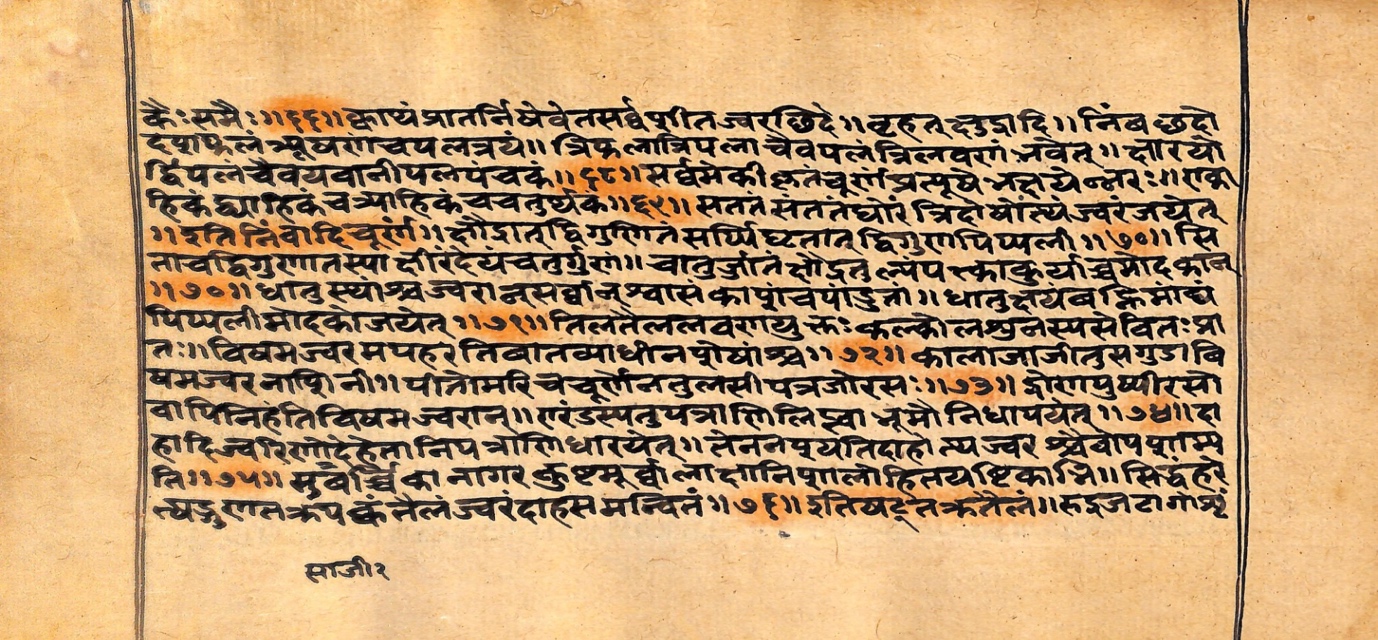 कैः समैः ॥६६॥ क्वाथं प्रातर्निषेवेत सर्व्वशीतज्वरछिदे ॥ वृहत् क्षुद्रादि ॥ निंबछदो
दशपलं त्र्यूषणं च पलत्रयं ॥ त्रिफला त्रिपला चैव पलं त्रिलवणं भवेत् ॥ क्षारयो
र्द्विपलं चैव यवानीपलपंचकं ॥६८॥ सर्व्वमेकीकृतं चूर्णं प्रत्यूषे भक्षयेन्नरः ॥ एका
हिकं द्व्याहिकं च त्र्याहिकं च चतुर्थकं ॥६९॥ सततं संततं घोरं त्रिदोषोत्यं ज्वरं जयेत्
॥ इति निंबादिचूर्णं ॥ क्षौद्रात् द्विगुणितं सर्प्पिघृतात् द्विगुणपिप्पली ॥७०॥ सि
ता च द्विगुणा तस्या क्षीरं देयं चतुर्गुणं ॥ चातुर्जातं क्षौद्रतुल्यं पक्त्वा कुर्याच्च मोदकान्
॥७०॥ धातुस्थाश्च ज्वरान् सर्व्वान् श्वासं काशं च पांडुतां ॥ धातुक्षयं वह्निमांद्यं
पिप्पलीमोदको जयेत् ॥७१॥ तिलतैललवणयुक्तः कल्को लशुनस्य सेवितः प्रा
तः ॥ विषमज्वरमपहरति वातव्याधीनशेषांश्च ॥७२॥ कालाजाजी तु सगुडा वि
षमज्वरनाशिनी ॥ पीतो मरिचचूर्णेन तुलसीपत्रजो रसः ॥७३॥ द्रोणपुष्पीरसो
वापि निहंति विषमज्वरान् ॥ एरंडस्य तु पत्राणि लिप्त्वा भूमौ निधापयेत् ॥७४॥ दा
हादिज्वरिणो देहे तानि पत्राणि धारयेत् ॥ तेन नश्यति दाहो त्य ज्वरश्चैवोपशाम्य
ति ॥७५॥ सुवर्च्चिका नागर कुष्टमूर्व्वा लाक्षा निशा लोहितयष्टिकाभि ॥ सिद्धं हरे
त्षड्गुणतक्रपक्वं तैलं ज्वरं दाहसमन्वितं ॥७६॥ इति षट्तक्रतैलं ॥ रुद्रजटागोशृं
सा जी २